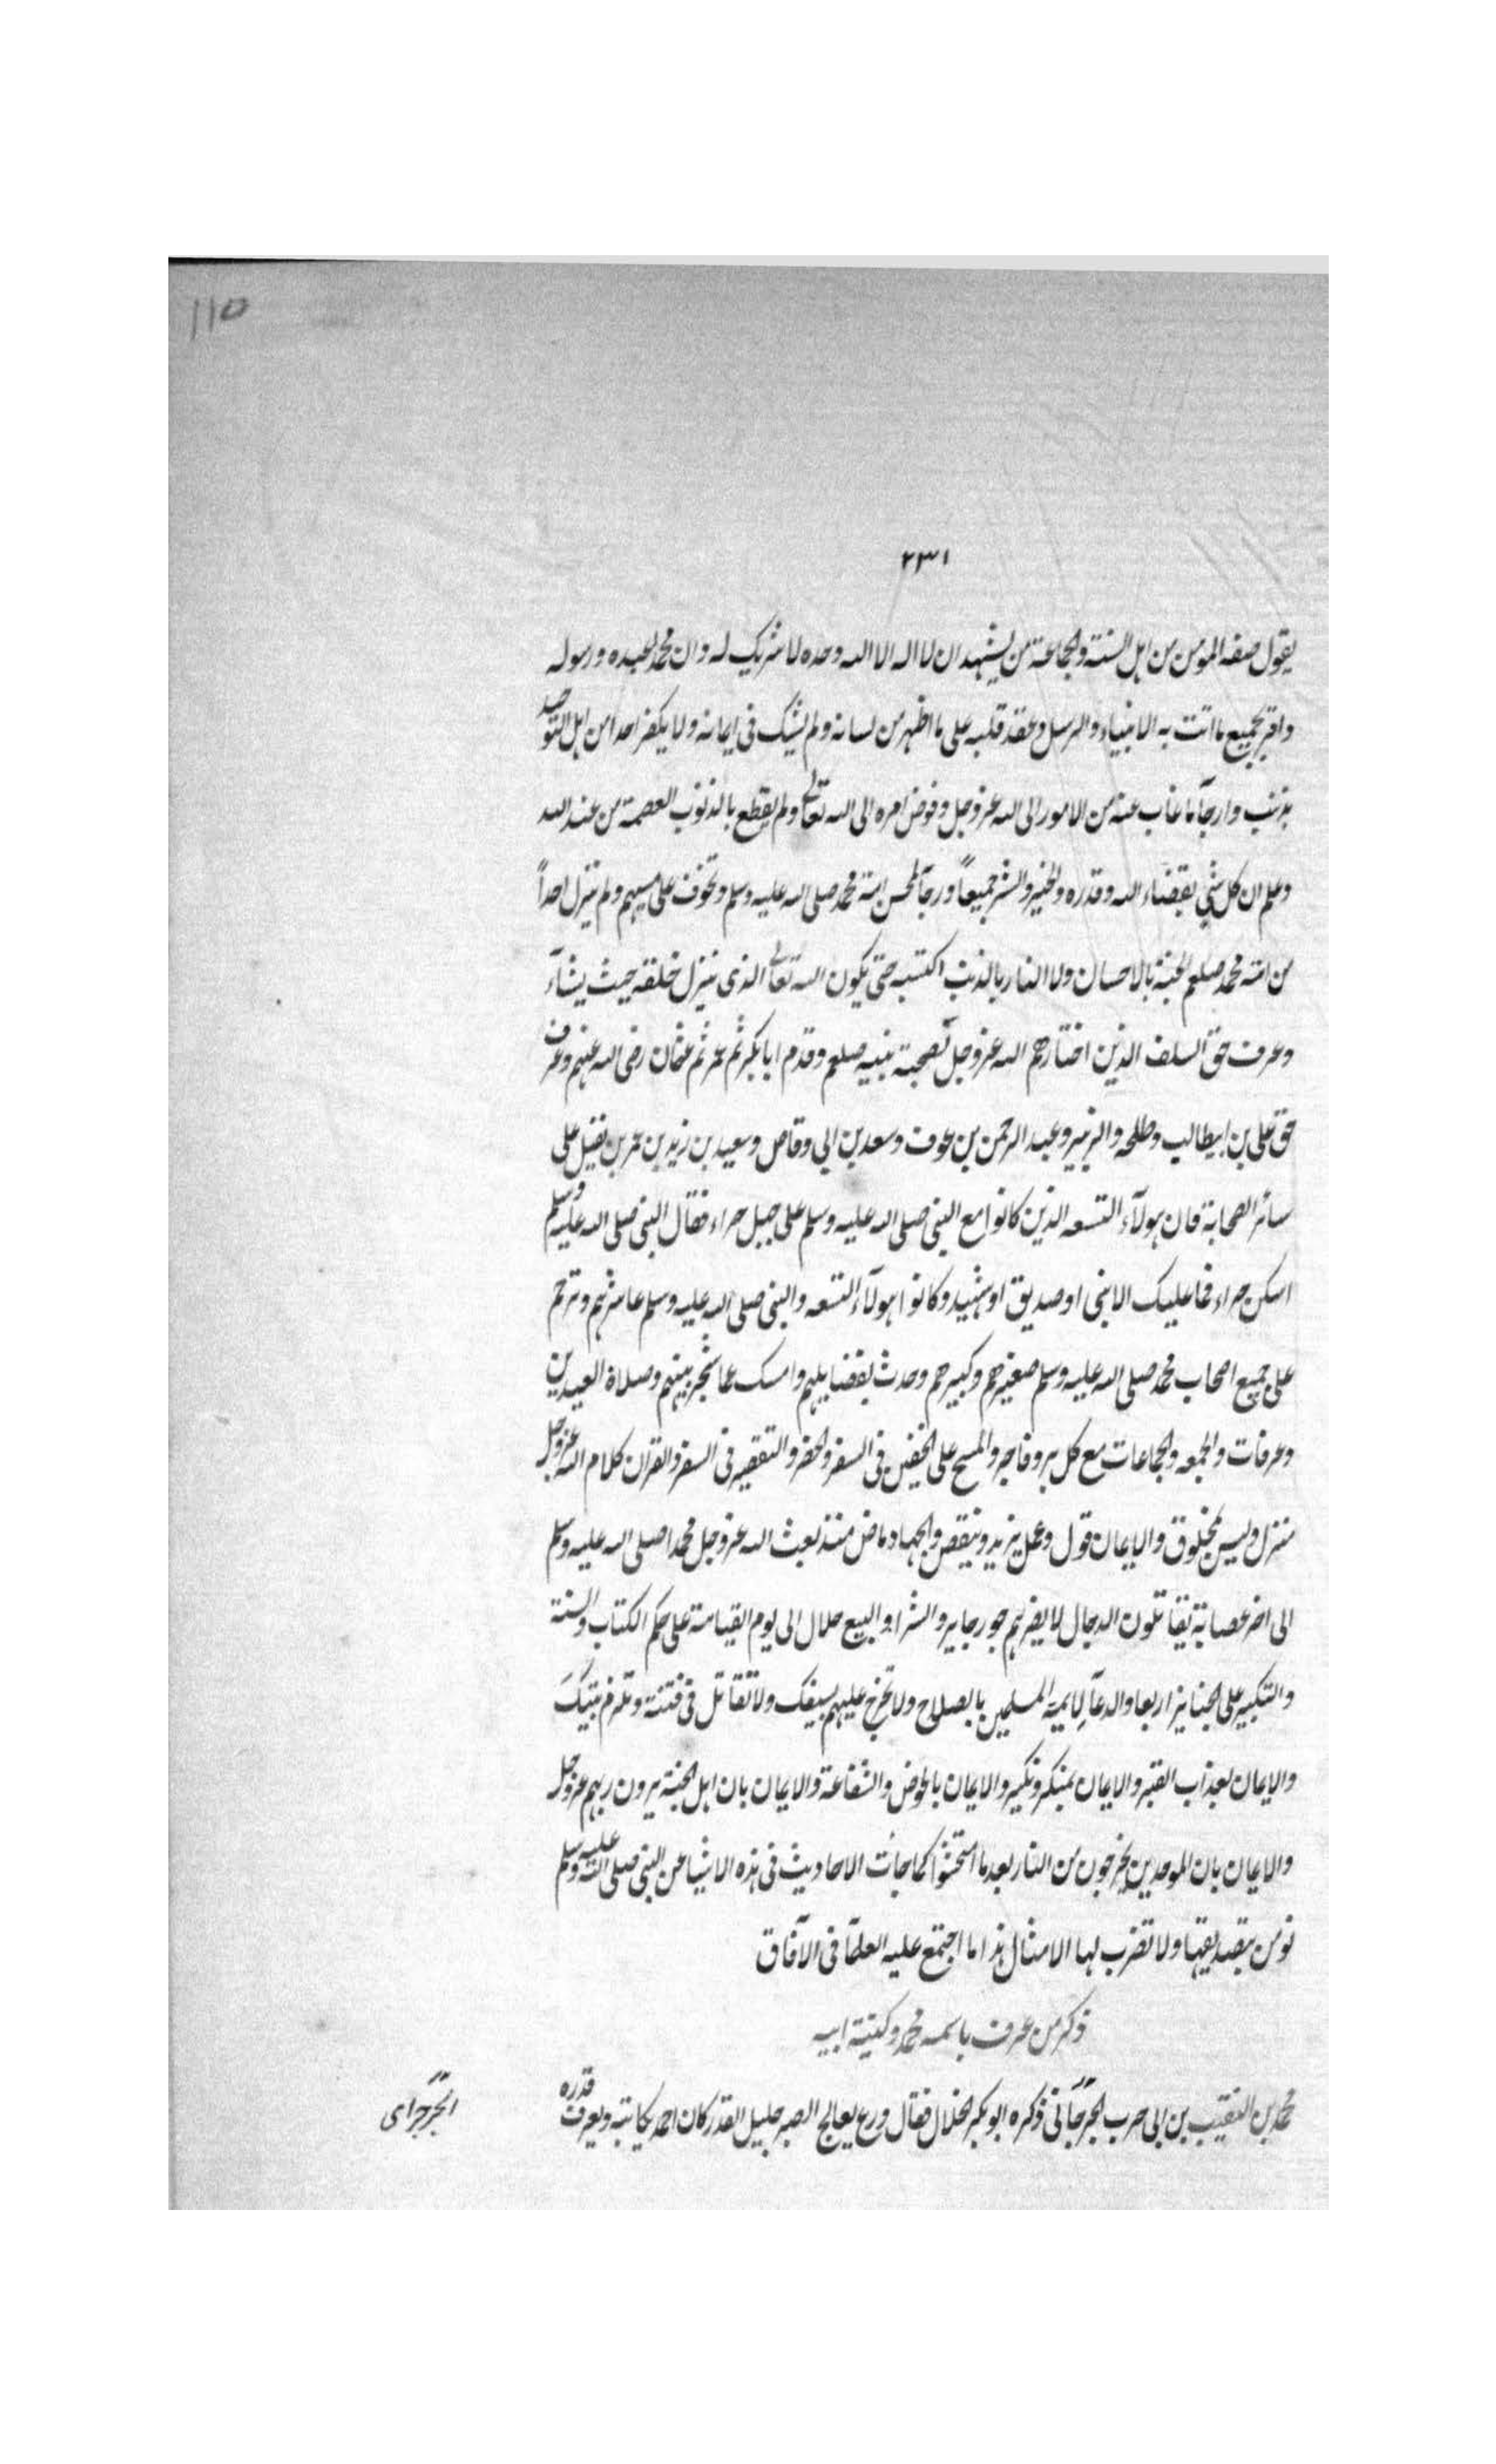 110
٢٣١
يقول صفة المومن من اهل السنة والجماعة من يشهد ان لا اله الا الله وحده لا شريك له وان محمدا عبده ورسوله
واقر بجميع ما اتت به الانبياء والرسل وعقد قلبه على ما اظهر من لسانه ولم يشك فى ايمانه ولا يكفر احدا من اهل التوحيد
بذنب وارجآ ما غاب عنه من الامور الى الله عز وجل وفوض امره الى الله تعالى ولم يقطع بالذنوب العصمة من عند الله
وعلم ان كل شئ بقضاء الله وقدره والخير والشر جميعاً ورجآ لمحسن امة محمد صلى الله عليه وسلم وتخوف على مسيهم ولم ينزل احداً
من امة محمد صلعم الجنة بالاحسان ولا النار بالذنب اكتسبه حتى يكون الله تعالى الذى ينزل خلقه حيث يشآء
وعرف حق السلف الذين اختارهم الله عز وجل لصحبة نبيه صلعم وقدم ابا بكر ثم عمر ثم عثمان رضى الله عنهم وعرف
حق على بن ابيطالب وطلحه والزبير وعبد الرحمن بن عوف وسعد بن ابى وقاص وسعيد بن زيد بن عمر بن نفيل على
سائر الصحابة فان هولآء التسعه الذين كانوا مع النبى صلى الله عليه وسلم على جبل حراء فقال النبى صلى الله عليه وسلم
اسكن حراء فما عليك الا نبى او صديق او شهيد وكانوا هولآء التسعه والنبى صلى الله عليه وسلم عاشرهم وترحم
على جميع اصحاب محمد صلى الله عليه وسلم صغيرهم وكبيرهم وحدث بفضايلهم وامسك عما شجر بينهم وصلاة العيدين
وعرفات والجمعه والجماعات مع كل بر وفاجر والمسح على الخفين فى السفر والحضر والتقصير فى السفر والقران كلام الله عز وجل
منزل وليس بمخلوق والايمان قول وعمل يزيد وينقص والجهاد ماض منذ بعث الله عز وجل محمدا صلى الله عليه وسلم
الى اخر عصابة يقاتلون الدجال لا يضرهم جور جاير والشرا والبيع حلال الى يوم القيامة على حكم الكتاب والسنة
والتكبير على الجنايز اربعا والدعآ لايمة المسلمين بالصلاح ولا تخرج عليهم بسيفك ولا تقاتل فى فتنة وتلزم بيتك
والايمان بعذاب القبر والايمان بمنكر ونكير والايمان بالحوض والشفاعة والايمان بان اهل الجنة يرون ربهم عز وجل
والايمان بان الموحدين يخرجون من النار بعد ما امتحشوا كما جات الاحاديث فى هذه الاشيا عن النبى صلى الله عليه وسلم
نومن بتصديقها ولا تضرب لها الامثال هذا ما اجتمع عليه العلمآ فى الآفاق
ذكر من عرف باسمه محمد وكنية ابيه
محمد بن النقيب بن ابى حرب الجرجآنى ذكره ابو بكر الخلال فقال ورع يعالج الصبر جليل القدر كان احمد يكاتبه ويعرف قدره
الجرجراى